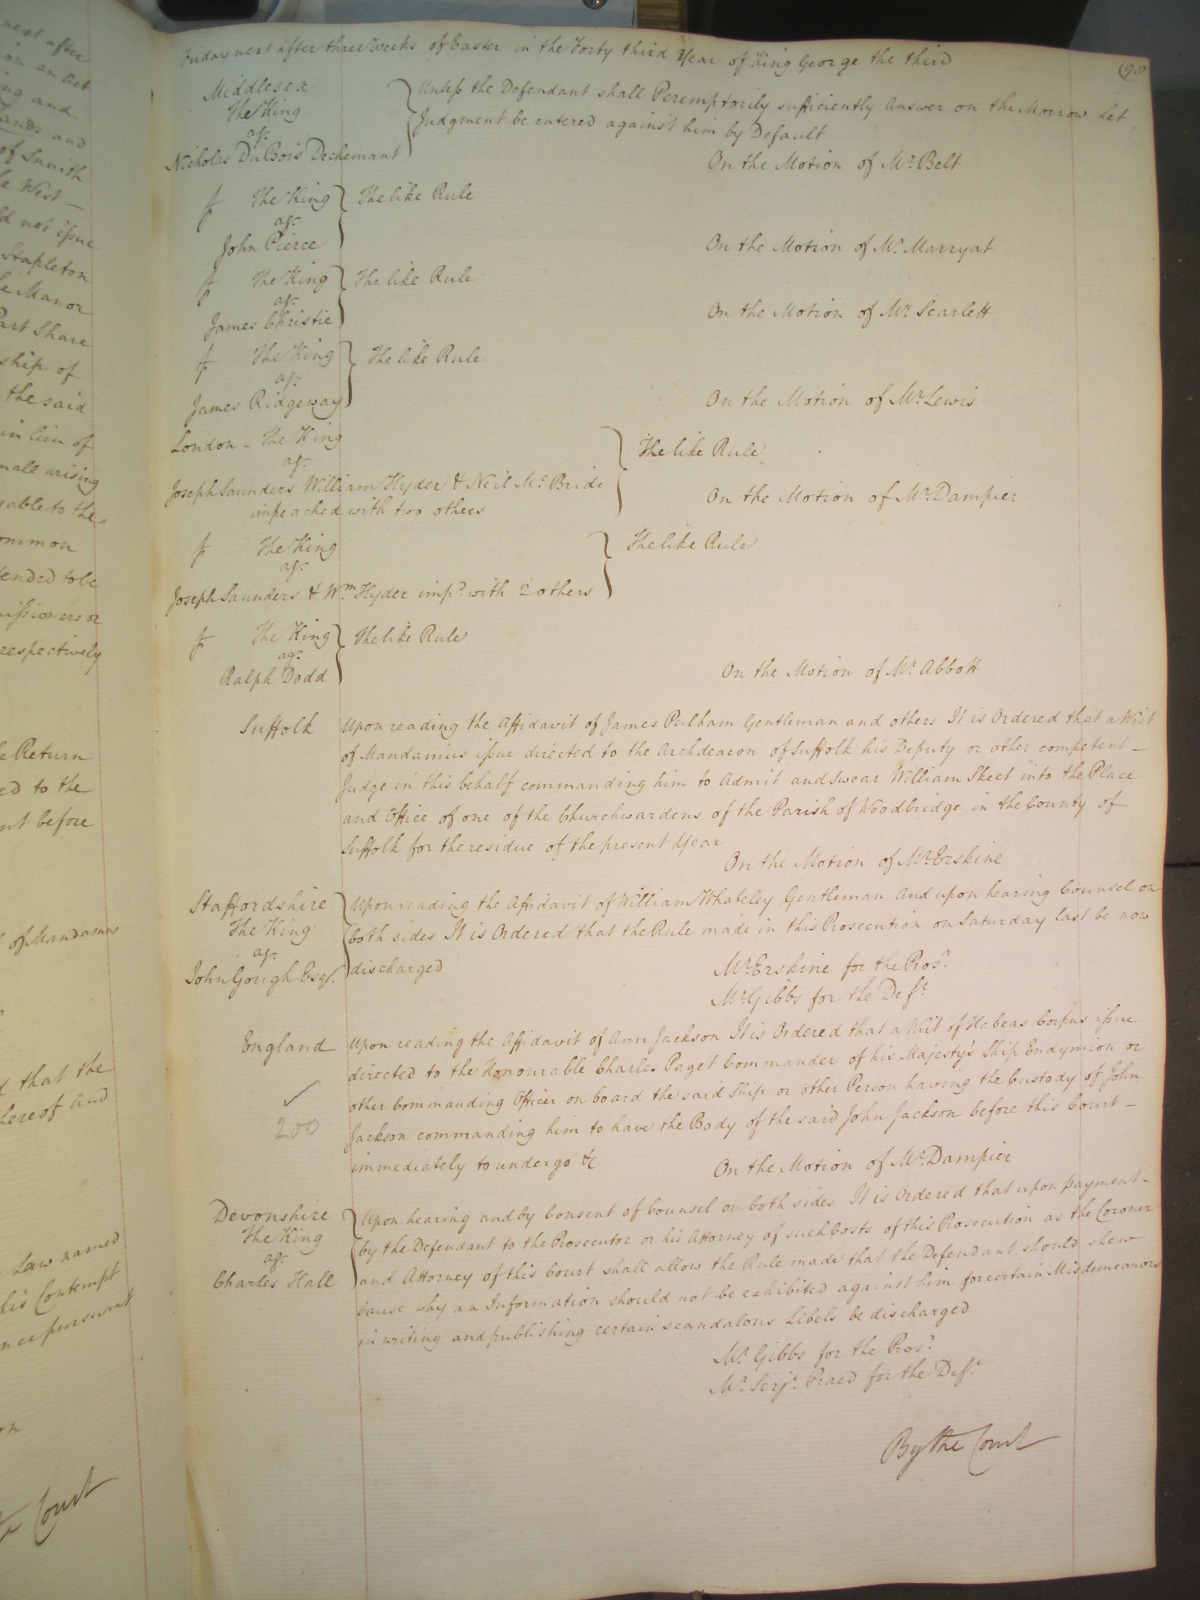 Friday next after three Weeks of Easter in the Forty third Year of King George the third
(98
Middlesex
The King
agt.
Nicholas DuBois Dechemant
Unless the Defendant shall Peremptorily sufficiently Answer on the Morrow Let
Judgment be entered against him by Default
On the Motion of Mr. Belt
The King
agt.
John Pierce
The like Rule
On the Motion of Mr. Marryat
The King
agt.
James Christie
The like Rule
On the Motion of Mr. Scarlett
The King
agt.
James Ridgeway
The like Rule
On the Motion of Mr. Lewis
London - The King
agt.
Joseph Saunders William Hyder & Neil Mc. Bride
impeached with two others
The like Rule
On the Motion of Mr. Dampier
The King
agt.
Joseph Saunders & Wm. Hyder impd. with 2 others
The like Rule
The King
agt.
Ralph Dodd
The like Rule
On the Motion of Mr. Abbott
Suffolk
Upon reading the Affidavit of James Pulham Gentleman and others It is Ordered that a Writ
of Mandamus issue directed to the Archdeacon of Suffolk his Deputy or other competent -
Judge in this behalf commanding him to Admit and Swear William Skeet into the Place
and Office of one of the Churchwardens of the Parish of Woodbridge in the County of
Suffolk for the residue of the present Year
On the Motion of Mr. Erskine
Staffordshire
The King
agt.
John Gough Esqr.
Upon reading the Affidavit of William Whateley Gentleman and upon hearing Counsel on
both sides It is Ordered that the Rule made in this Prosecution on Saturday last be now
discharged
Mr. Erskine for the Prosr.
Mr. Gibbs for the Deft.
England
200
Upon reading the Affidavit of Ann Jackson It is Ordered that a Writ of Habeas Corpus issue
directed to the Honourable Charles Paget Commander of his Majesty's Ship Endymion or
other Commanding Officer on board the said Ship or other Person having the Custody of John
Jackson commanding him to have the Body of the said John Jackson before this Court -
immediately to undergo &c
On the Motion of Mr. Dampier
Devonshire
The King
agt.
Charles Hall
Upon hearing and by Consent of Counsel on both sides It is Ordered that upon payment -
by the Defendant to the Prosecutor or his Attorney of such Costs of this Prosecution as the Coroner
and Attorney of this Court shall allow the Rule made that the Defendant should shew
Cause why an Information should not be exhibited against him for certain Misdemeanors
in writing and publishing certain scandalous Libels be discharged
Mr. Gibbs for the Prosr.
Mr. Serjt. Praed for the Deft.
By the Court
next after
on an Act
and
ands and
of Snaith
West -
not issue
Stapleton
Manor
Part Share
ship of
the said
in lieu of
small arising
able to the
ommon
tended to be
missioners or
respectively
Return
ed to the
nt before
of Mandamus
that the
hereof and
Law named
his Contempt
nce pursuant
on
Court